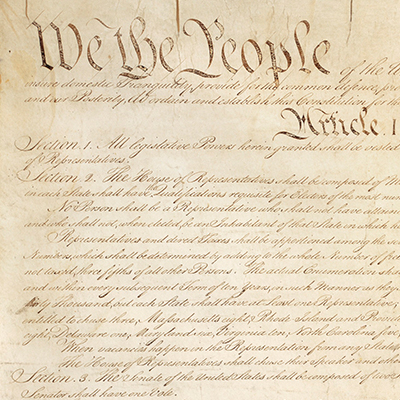 We the People of the U
insure domestic Tranquility, provide for the common defence, pro
and our Posterity, do ordain and establish this Constitution for th
Article. I
Section. 1. All legislative Powers herein granted shall be vested
of Representatives.
Section. 2. The House of Representatives shall be composed of M
in each State shall have the Qualifications requisite for Electors of the most num
No Person shall be a Representative who shall not have attain
and who shall not, when elected, be an Inhabitant of that State in which h
Representatives and direct Taxes shall be apportioned among the sev
Numbers, which shall be determined by adding to the whole Number of free
not taxed, three fifths of all other Persons. The actual Enumeration shall
and within every subsequent Term of ten Years, in such Manner as they
thirty Thousand, but each State shall have at Least one Representative;
entitled to chuse three, Massachusetts eight, Rhode Island and Provid
eight, Delaware one, Maryland six, Virginia ten, North Carolina five,
When vacancies happen in the Representation from any State,
The House of Representatives shall chuse their Speaker and othe
Section. 3. The Senate of the United States shall be composed of two
Senator shall have one Vote.